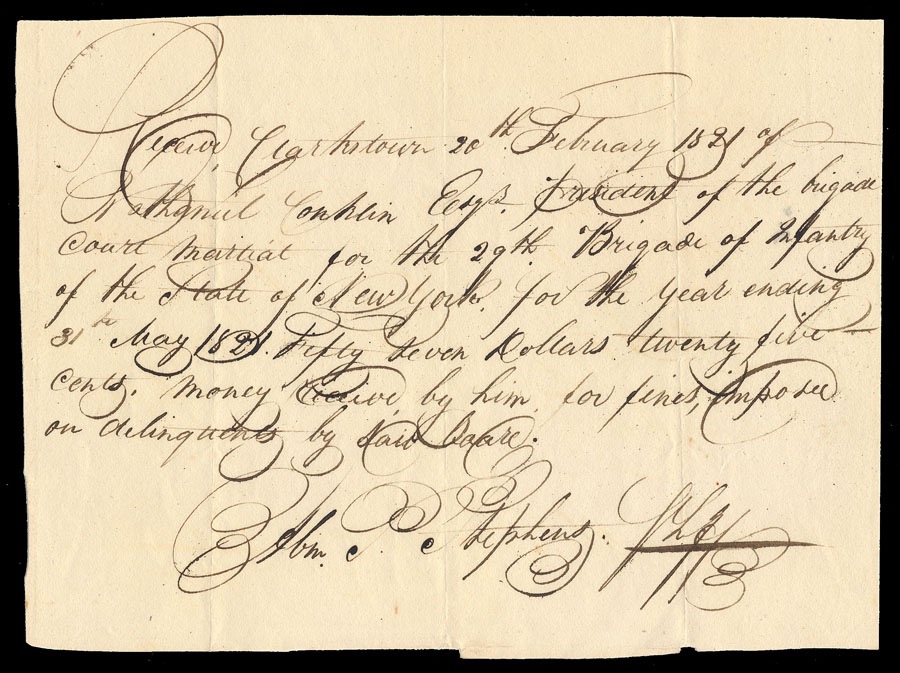 Receivd, Clarkstown 20th February 1821 of
Nathaniel Conklin Esqr. President of the brigade
Court Martial for the 29th Brigade of Infantry
of the State of New York. for the year ending
31st May 1821. Fifty Seven Dollars twenty five
cents. money Receivd, by him for fines, imposed
on delinquents by said
Abm. Stephens.